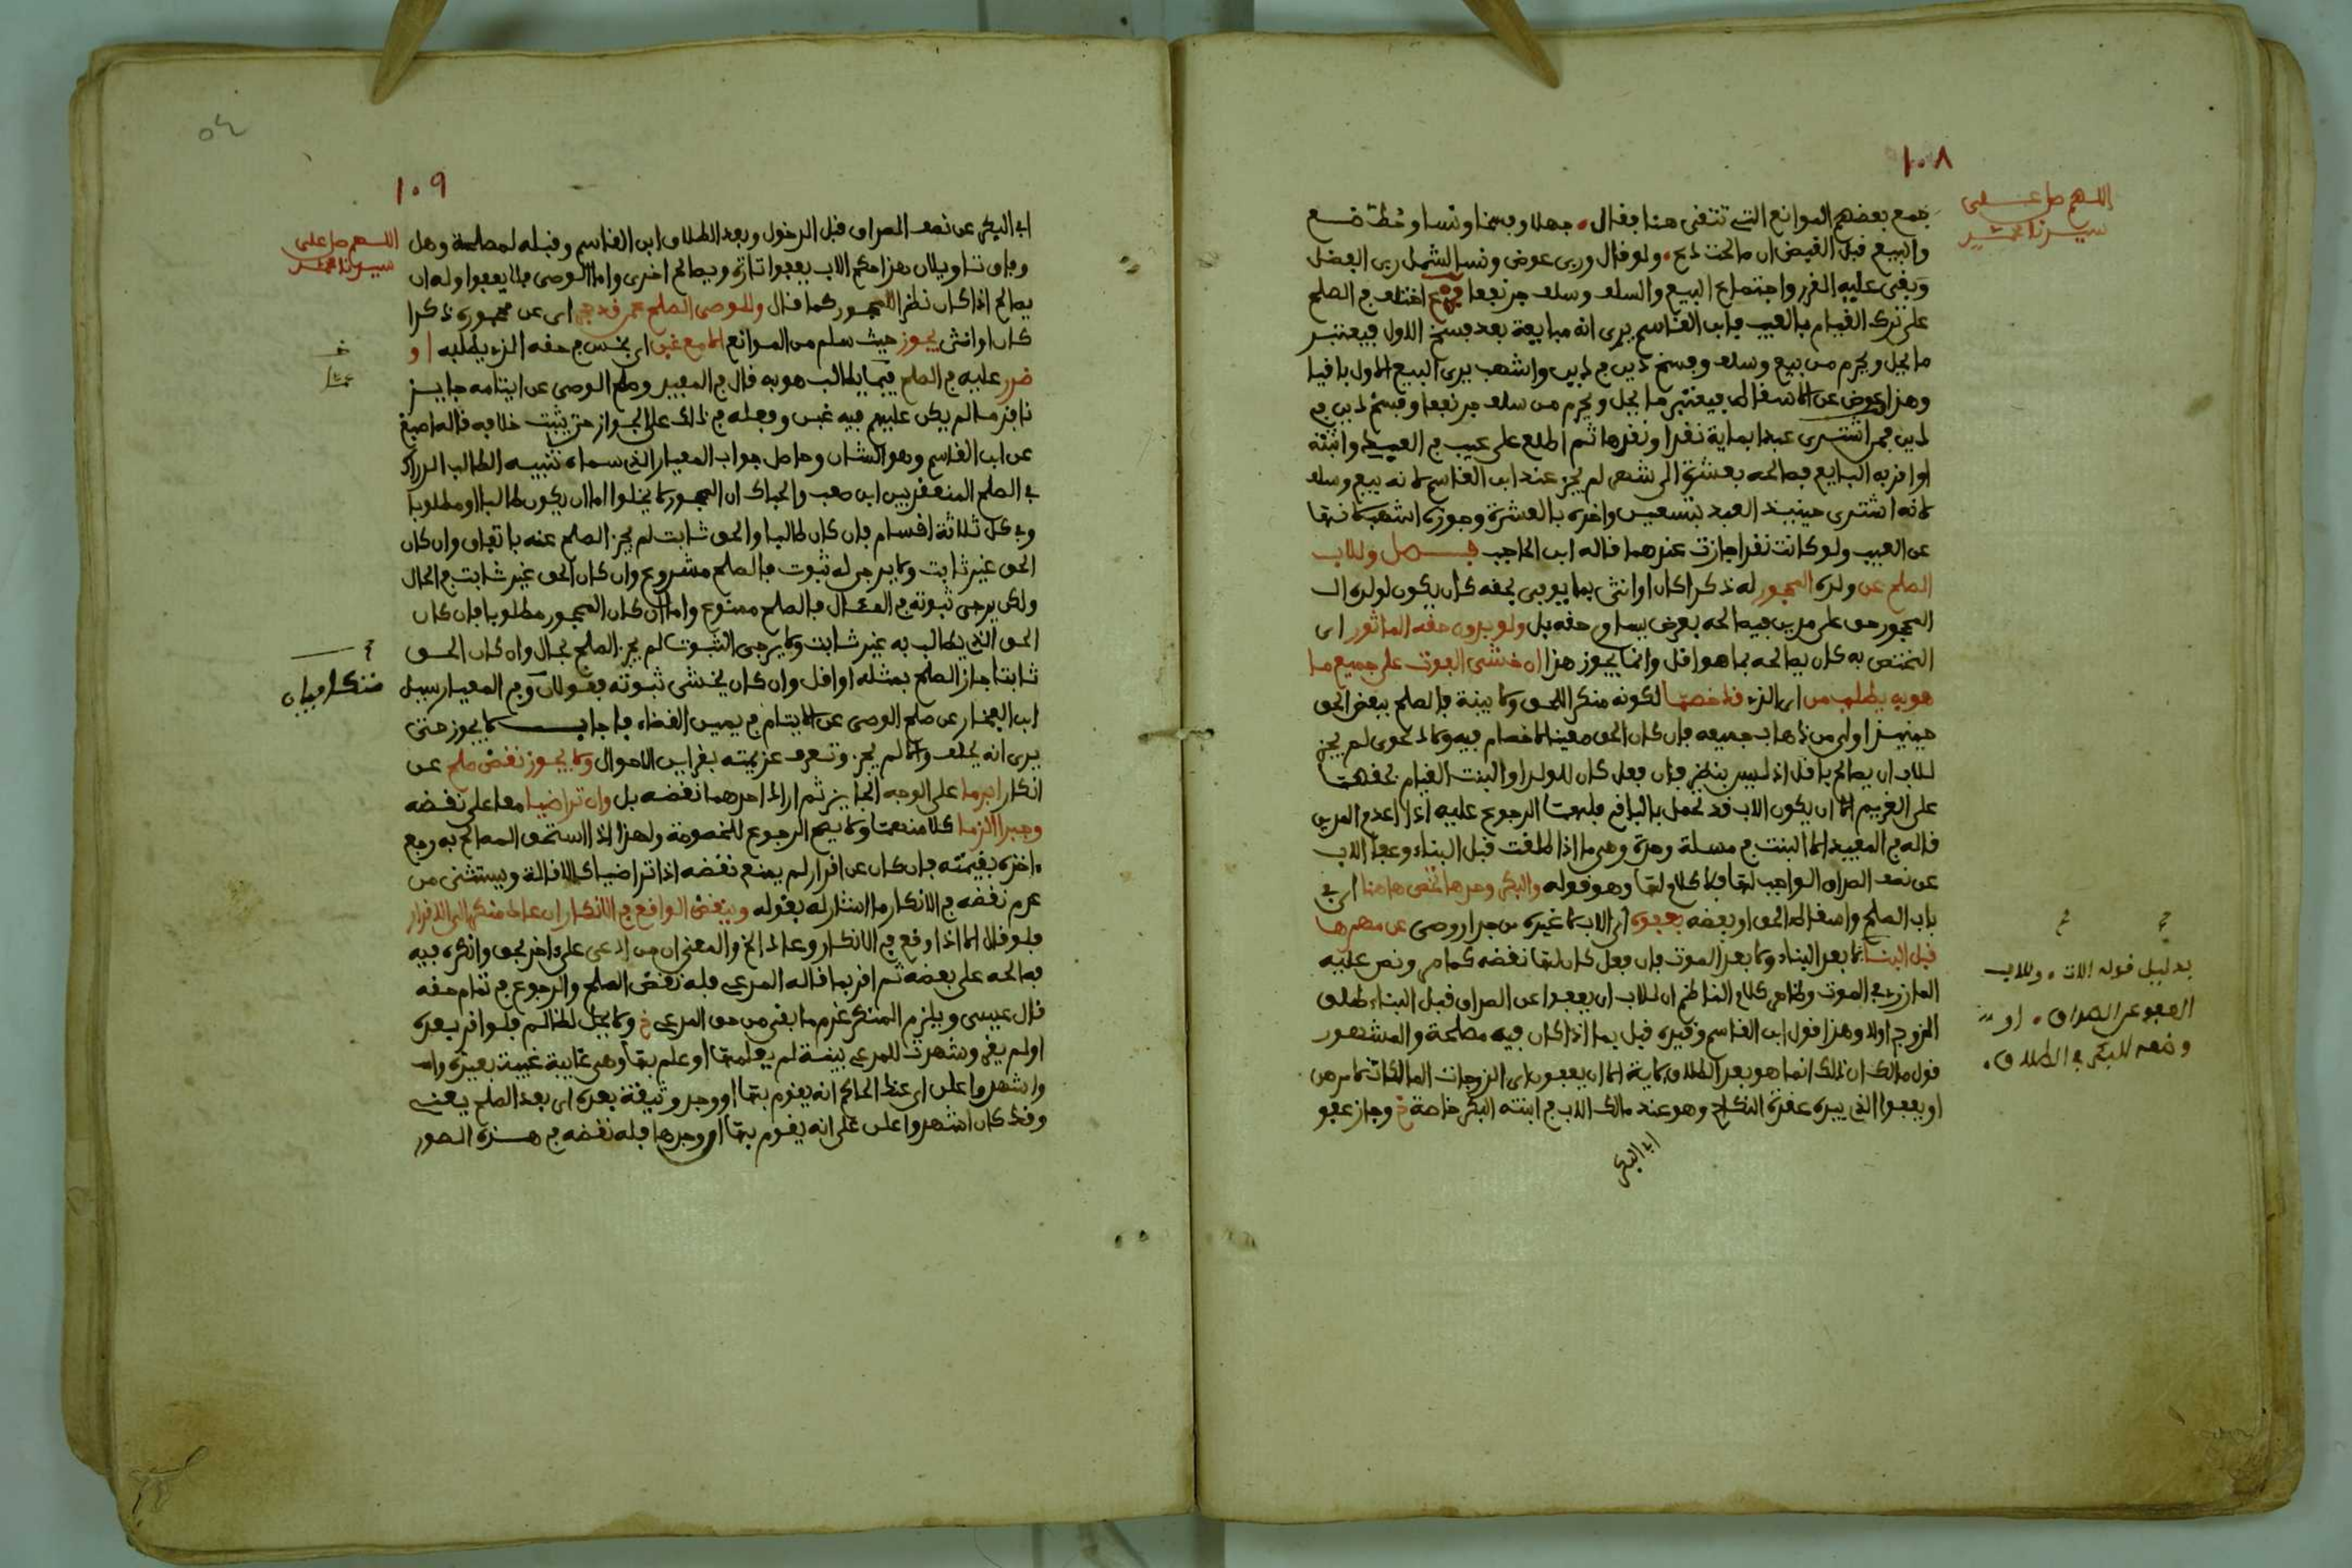 ١٠٨
اللهم صل على
سيدنا محمد
جمع بعضهم الموانع التي تتقى هنا فقال جهلا وفسخا ونسا وحط ضع
والبيع قبل القبض ان صالحت دع ولو قال وربى عوض ونسا لشمل ربى الفضل
وبقى عليه الغرر واجتماع البيع والسلف وسلف جر نفعا فرع اختلف في الصلح
على ترك القيام بالعيب فابن القاسم يرى انه مبايعة بعد فسخ الاول فيعتبر
ما يحل ويحرم من بيع وسلف وفسخ دين في دين واشهب يرى البيع الاول باقيا
وهذا عوض عن الاسقاط فيعتبر ما يحل ويحرم من سلف جر نفعا وفسخ دين في
دين فمن اشترى عبدا بماية نقدا ونقدها ثم اطلع على عيب في العبد واثبته
او اقر به البايع فصالحه بعشرة الى شهر لم يجز عند ابن القاسم لانه بيع وسلف
لانه اشترى حينيذ العبد بتسعين واخره بالعشرة وجوزه اشهب لانها
عن العيب ولو كانت نقدا جازت عندهما قاله ابن الحاجب فصل وللاب
الصلح عن ولده المحجور له ذكرا كان او انثى بما يوفى بحقه كان يكون لولده الـ
المحجور حق على مدين فيصالحه بعرض يساوى حقه بل ولو بدون حقه الماثور اى
المختص به كان يصالحه بما هو اقل وانما يجوز هذا ان خشى الفوت على جميع ما
هو به يطلب من اى الذى قد خصما لكونه منكر اللحق ولا بينة فالصلح ببعض الحق
حينيذ اولى من ذهاب جميعه فان كان الحق معينا لا خصام فيه ولا دعوى لم يجز
للاب ان يصالح باقل اذ ليس بنظر فان فعل كان للولد او البنت القيام بحقهما
على الغريم الا ان يكون الاب قد تحمل بالباقى فلهما الرجوع عليه اذا اعدم المدين
قاله في المفيد الا البنت في مسلة وحدة وهى ما اذا طلقت قبل البناء وعفا الاب
عن نصف الصداق الواجب لها فلا كلام لها وهو قوله والبكر وحدها تخص هاهنا اى في
باب الصلح واسقاط الحق او بعضه بعفوه اى الاب لا غيره من جد او وصى عن مهرها
قبل البنا لا بعد البناء ولا بعد الموت فان فعل كان لها نقضه كما مر ونص عليه
المازرى في الموت وظاهر كلام الناظم ان للاب ان يعفوا عن الصداق قبل البناء طلق
الزوج اولا وهذا قول ابن القاسم وقيده قبل بما اذا كان فيه مصلحة والمشهور
قول مالك ان ذلك انما هو بعد الطلاق لاية الا ان يعفون اى الزوجات المالكات لامرهن
او يعفوا الذى بيده عقدة النكاح وهو عند مالك الاب في ابنته البكر خاصة خ وجاز عفو
اب البكر
بدليل قوله الاتى وللاب
العفو عن الصداق او
ونصف للبكر في الطلاق
١٠٩
٥٤
اللهم صل على
سيدنا محمد
اب البكر عن نصف الصداق قبل الدخول وبعد الطلاق ابن القاسم وقبله لمصلحة وهل
وفاق تاويلان هذا حكم الاب يعفوا تارة ويصالح اخرى واما الوصى فلا يعفوا وله ان
يصالح اذا كان نظرا للمحجور كما قال وللوصى الصلح عمن قد حجر اى عن محجوره ذكرا
كان او انثى يجوز حيث سلم من الموانع الا مع غبن اى بخس في حقه الذى يطلبه او
ضرر عليه في الصلح فيما يطالب هو به قال في المفيد وصلح الوصى عن ايتامه جايز
نافذ ما لم يكن عليهم فيه غبن وفعله في ذلك على الجواز حتى يثبت خلافه قاله اصبغ
عن ابن القاسم وهو الشان وحاصل جواب المعيار الذى سماه تنبيه الطالب الدراك
في الصلح المنعقد بين ابن صعد والحباك ان المحجور لا يخلوا اما ان يكون طالبا او مطلوبا
وفى كل ثلاثة اقسام فان كان طالبا والحق ثابت لم يجز الصلح عنه باتفاق وان كان
الحق غير ثابت ولا يرجى له ثبوت فالصلح مشروع وان كان الحق غير ثابت في الحال
ولكن يرجى ثبوته في المـال فالصلح ممنوع واما ان كان المحجور مطلوبا فان كان
الحق الذى يطالب به غير ثابت ولا يرجى الثبوت لم يجز الصلح بحال وان كان الحق
ثابتا جاز الصلح بمثله او اقل وان كان يخشى ثبوته فقولان وفى المعيار سيل
ابن الفخار عن صلح الوصى عن الايتام في يمين القضاء فاجاب لا يجوز حتى
يرى انه يحلف والا لم يجز وتعرف عزيمته بقراين الاحوال ولا يجوز نقض صلح عن
انكار ابرما على الوجه الجايز ثم اراد احدهما نقضه بل وان تراضيا معا على نقضه
وجبرا الزما كلا منهما ولا يصح الرجوع للخصومة ولهذا اذا استحق المصالح به رجع
اخذه بقيمته فان كان عن اقرار لم يمنع نقضه اذا تراضيا كالاقالة ويستثنى من
عدم نقضه في الانكار ما اشار له بقوله وينقض الواقع في الانكار ان عاد منكر الى الاقرار
فلو قال الا اذا وقع في الانكار وعاد الخ والمعنى ان من ادعى على اخر بحق وانكره فيه
فصالحه على بعضه ثم اقر بما قاله المدعى فله نقض الصلح والرجوع في تمام حقه
قال عيسى ويلزم المنكر غرم ما بقى من حق المدعى خ ولا يحل للظالم فلو اقر بعده
او لم يقر وشهدت للمدعى بينة لم يعلمها او علم بها وهى غايبة غيبة بعيدة وانه
واشهدوا على اى عند الحاكم انه يقوم بها او وجد وثيقة بعده اى بعد الصلح يعنى
وقد كان اشهدوا على على انه يقوم بها او وجدها فله نقضه في هذه الصور